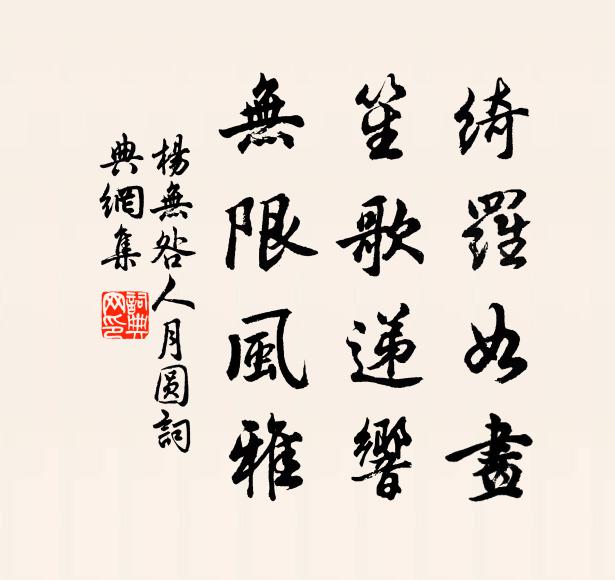 綺羅如畫
笙歌遞響
無限風雅
楊無咎人月圓詞
典網集
詞典网印